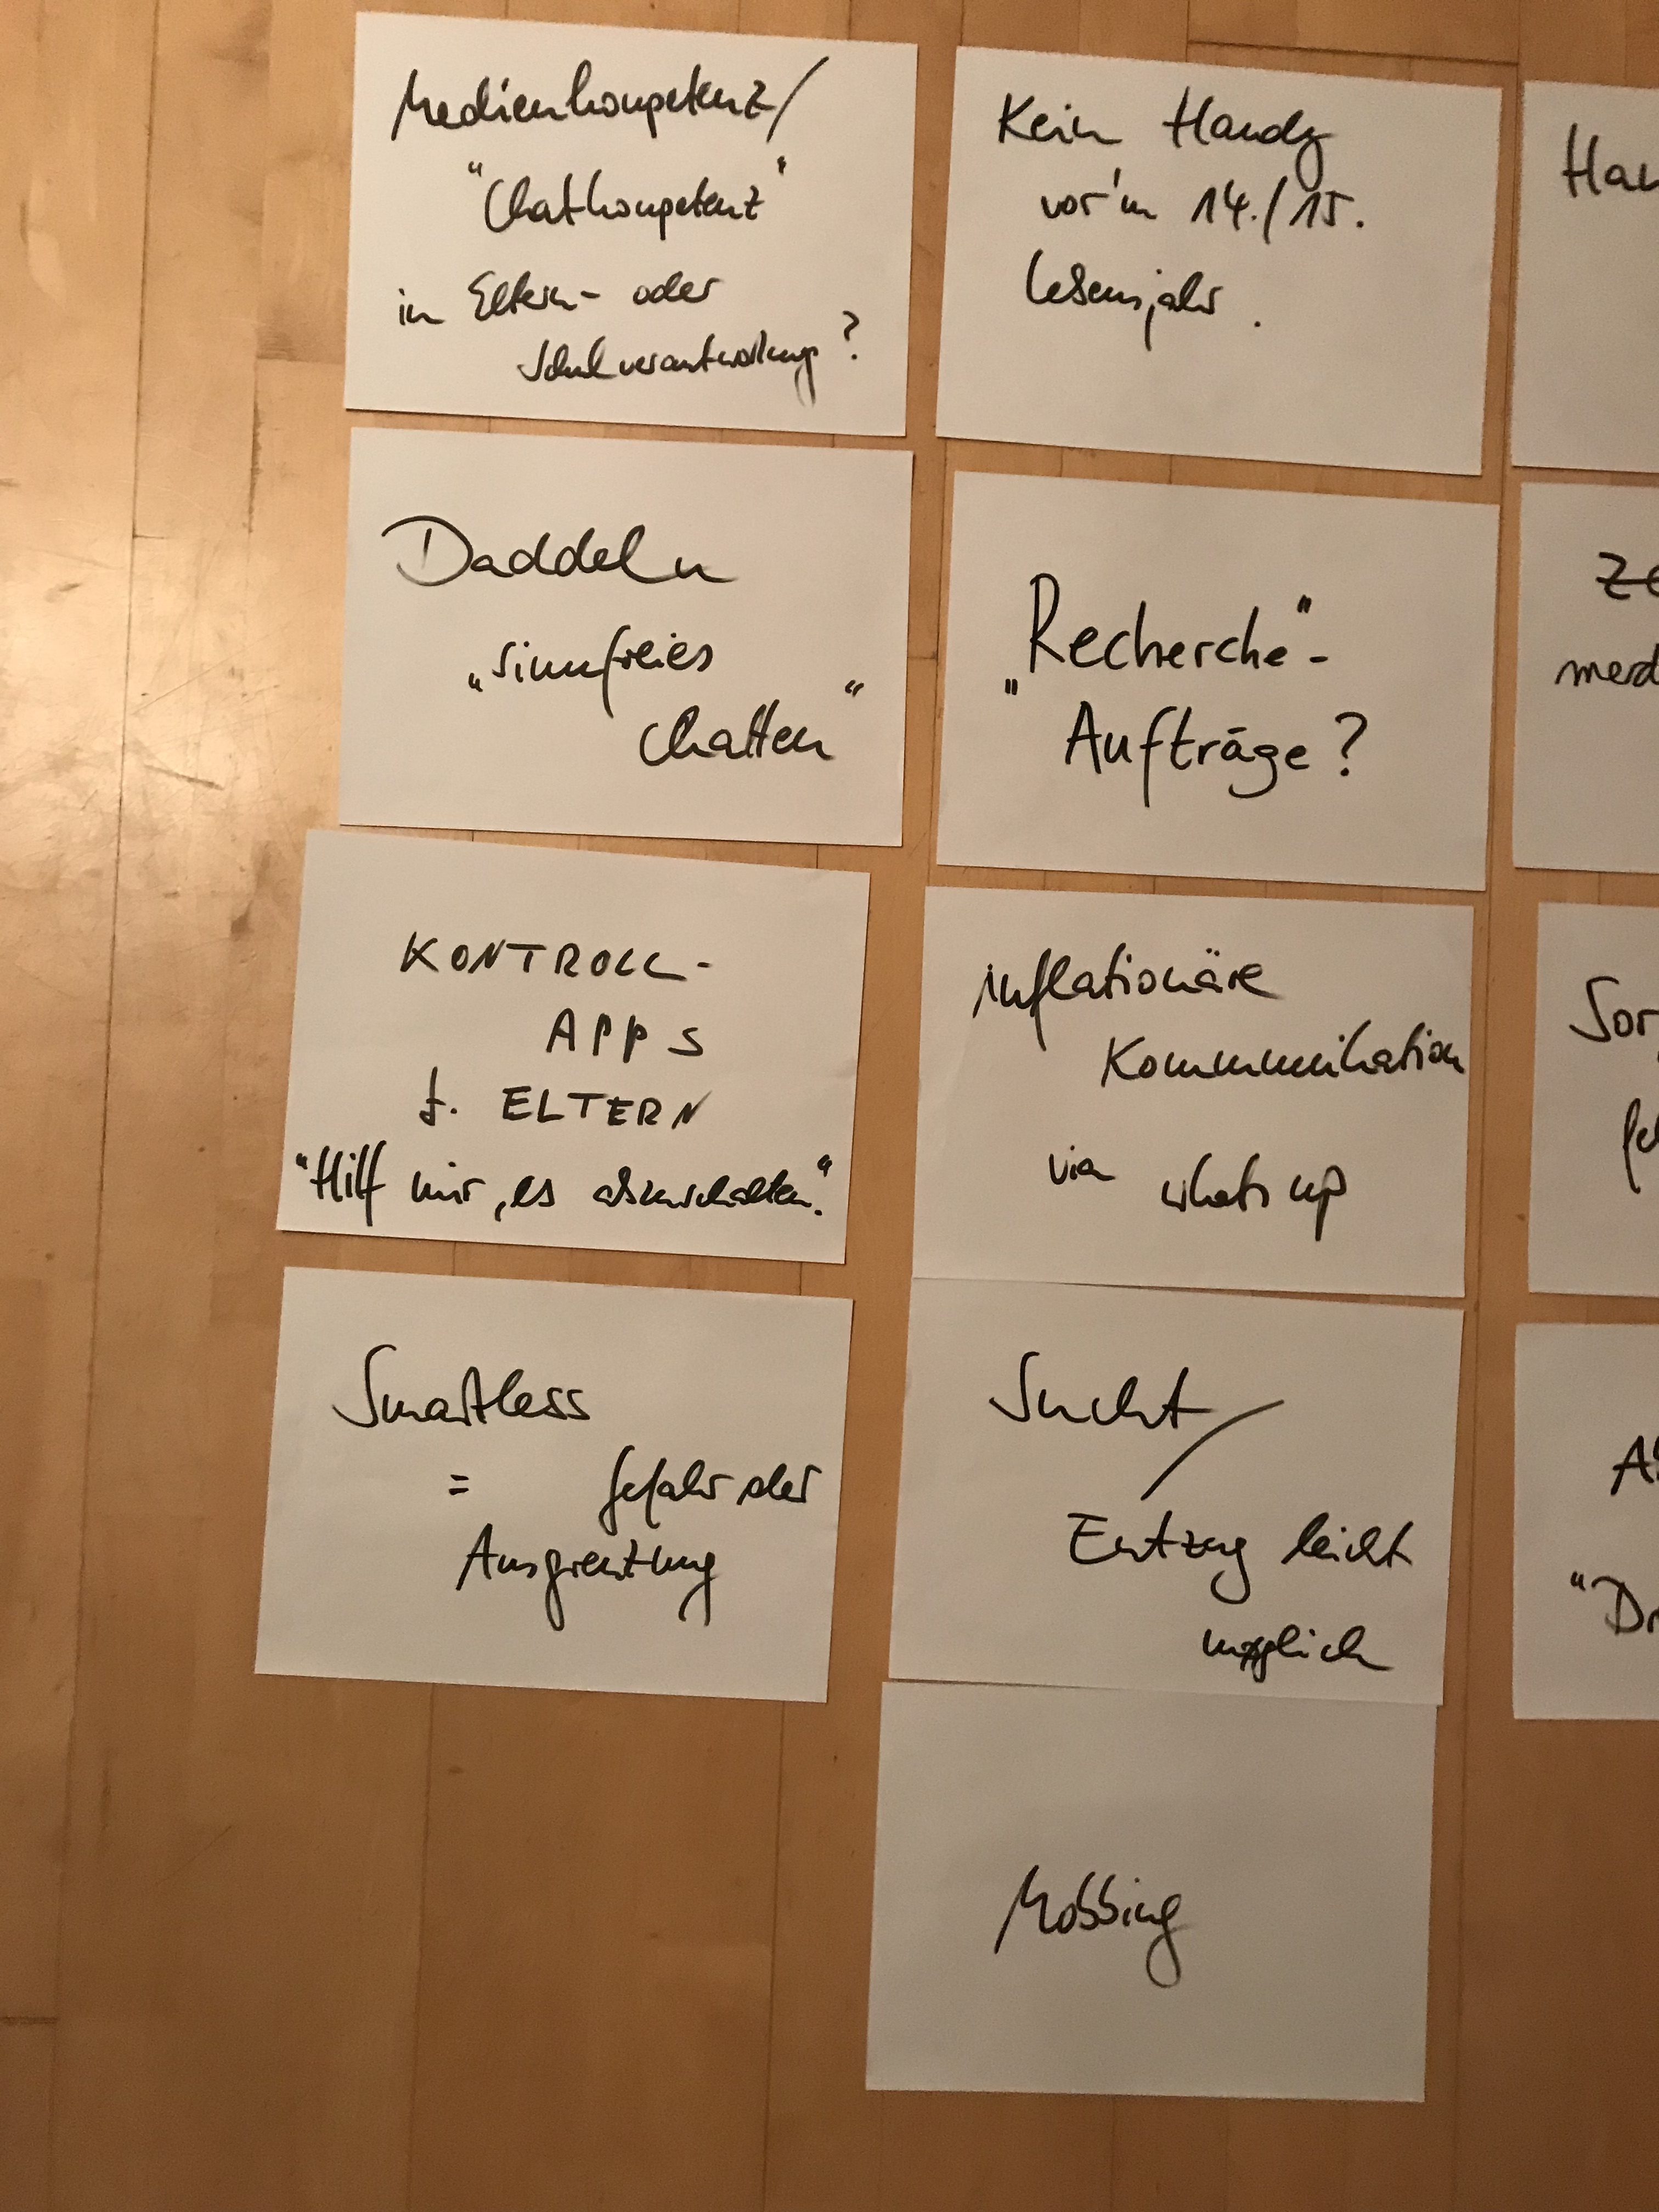 Medienkompetenz/
"Chatkompetenz"
in Eltern- oder
Schulverantwortung?
Kein Handy
vor'm 14./15.
Lebensjahr.
Han
Daddeln
„sinnfreies
Chatten“
"Recherche"-
"Aufträge?
ze
merd
KONTROLL-
APPS
f. ELTERN
"Hilf mir, es abzuschalten."
inflationäre
Kommunikation
via whats up
Sor
fe
Smartless
= Gefahr der
Ausgrenzung
Sucht/
Entzug leicht
möglich
"Dr
Mobbing